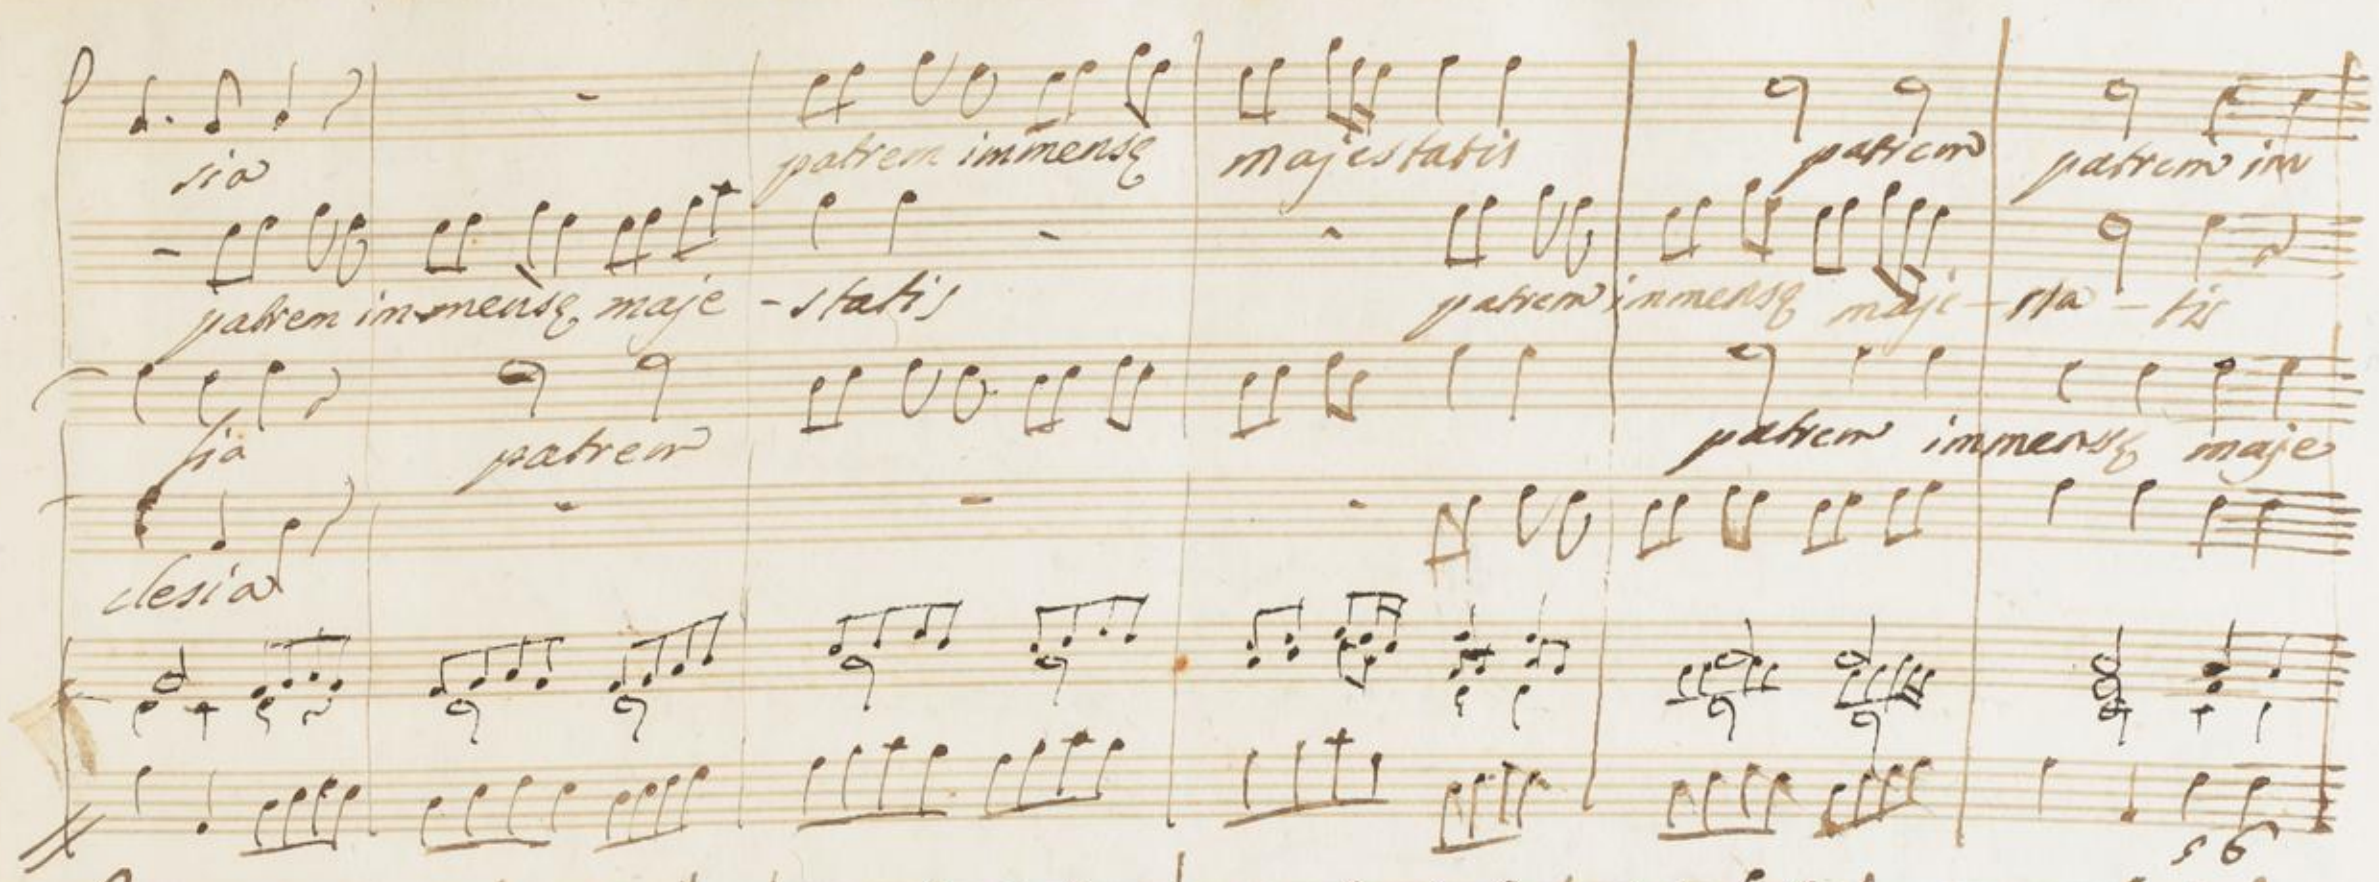 sia patrem immensę majestatis patrem patrem im
patrem immensę maje - statis patrem inmensę maje - sta - tis
sia patrem patrem immensę maje
clesia
5 6